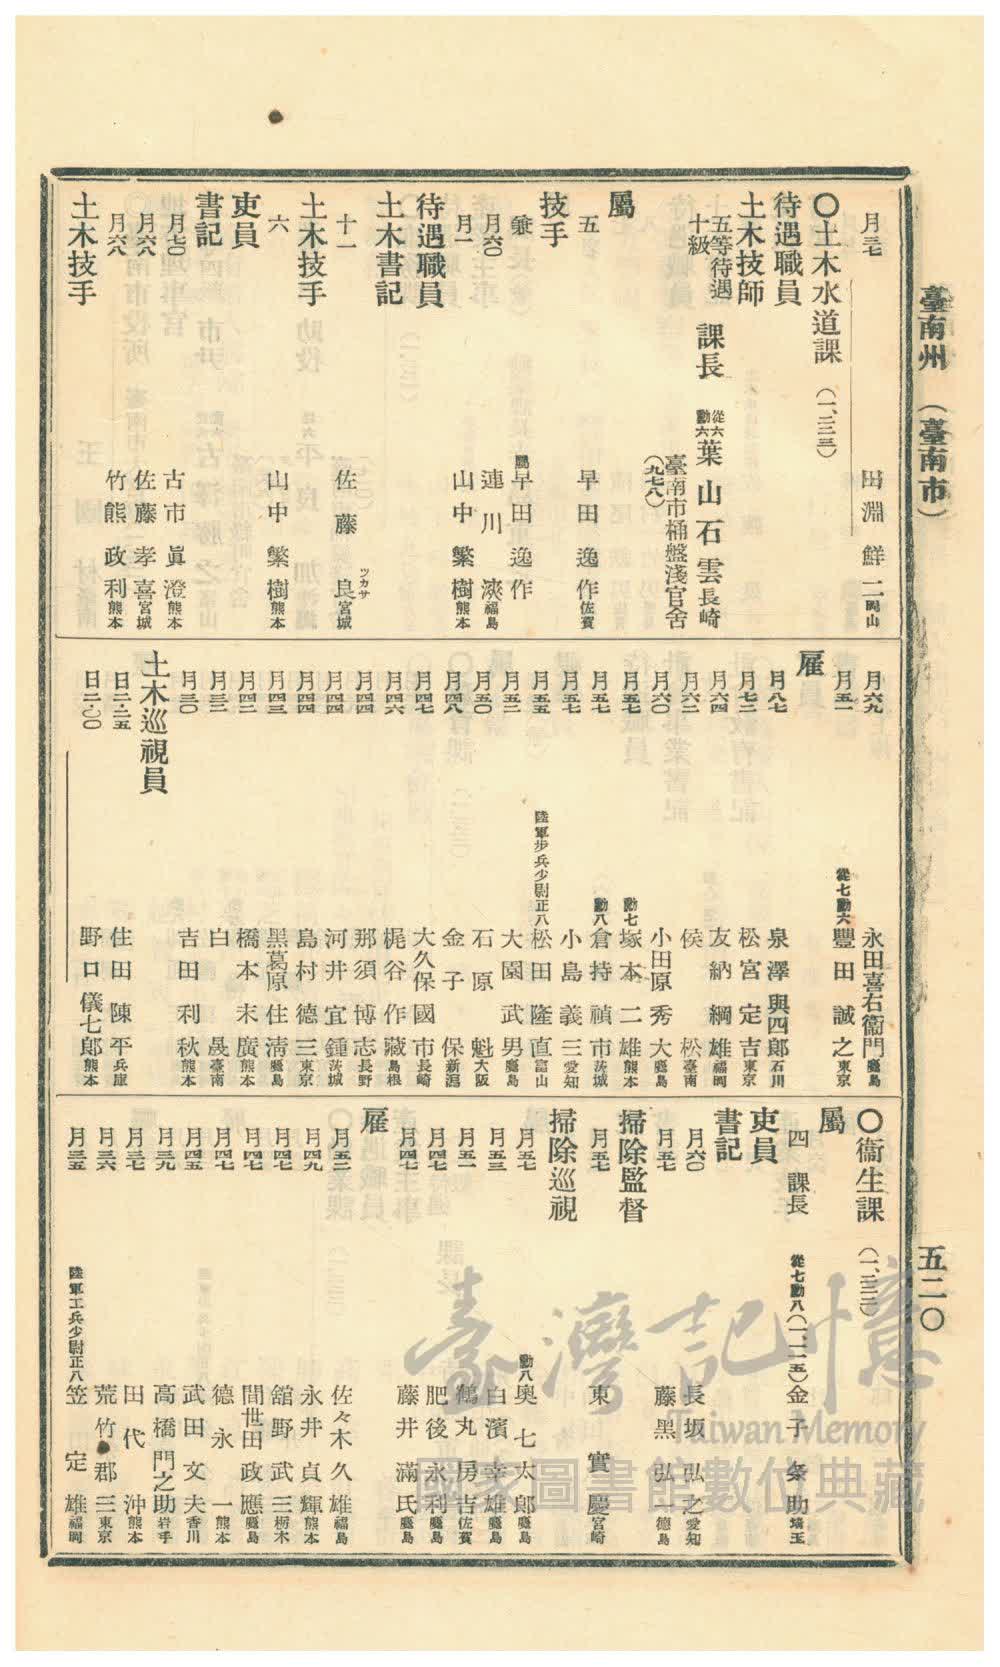 臺南州 (臺南市)
五二〇
月三七 田淵鮮二 岡山
〇土木水道課 (一、三三三)
待遇職員
土木技師
五等待遇 十級 課長 從六勳六 葉山石雲 長崎
臺南市桶盤淺官舍 (九七八)
屬
五 早田逸作 佐賀
技手
兼 屬 早田逸作
月六〇 連川 福島
月一 山中繁樹 熊本
待遇職員
土木書記
十一 佐藤良 ツカサ 宮城
土木技手
六 山中繁樹 熊本
吏員
書記
月七〇 古市眞澄 熊本
月六八 佐藤孝喜 宮城
月六八 竹熊政利 熊本
土木技手
月六九 永田喜右衞門 鹿島
月五一 從七勳六 豐田誠之 東京
雇
月八七 泉澤與四郎 石川
月七二 松宮定吉 東京
月六四 友納綱雄 福岡
月六二 侯松 臺南
月六〇 小田原秀大 鹿島
月五七 勳七 塚本二雄 熊本
月五七 勳八 倉持禎市 茨城
月五七 小島義三 愛知
月五五 陸軍步兵少尉正八 松田隆直 富山
月五二 大園武男 鹿島
月五〇 石原魁 大阪
月四八 金子保 新潟
月四七 大久保國市 長崎
月四六 梶谷作藏 島根
月四四 那須博志 長野
月四四 河井宜鍾 茨城
月四四 島村德三 東京
月四三 黑葛原住淸 鹿島
月四二 橋本末廣 熊本
月三二 白晟 臺南
月三〇 吉田利秋 熊本
土木巡視員
日二・二五 住田陳平 兵庫
日二・〇〇 野口儀七郎 熊本
〇衞生課 (一、三三二)
屬
四 課長 從七勳八 (一、一一五) 金子粂助 埼玉
吏員
書記
月六〇 長坂弘之 愛知
月五七 藤黑弘一 德島
掃除監督
月五七 東實慶 宮崎
掃除巡視
月五七 勳八 奥七太郎 鹿島
月五三 白濱幸雄 鹿島
月五一 鶴丸房吉 佐賀
月四七 肥後永利 鹿島
月四七 藤井滿氏 鹿島
雇
月五二 佐々木久雄 福島
月四九 永井貞輝 熊本
月四七 舘野武三 栃木
月四七 間世田政應 鹿島
月四七 德永一 熊本
月四五 武田文夫 香川
月三九 高橋門之助 岩手
月三七 田代沖 熊本
月三六 荒竹郡三 東京
月三五 陸軍工兵少尉正八 笠定雄 福岡
臺灣記憶
Taiwan Memory
國家圖書館數位典藏